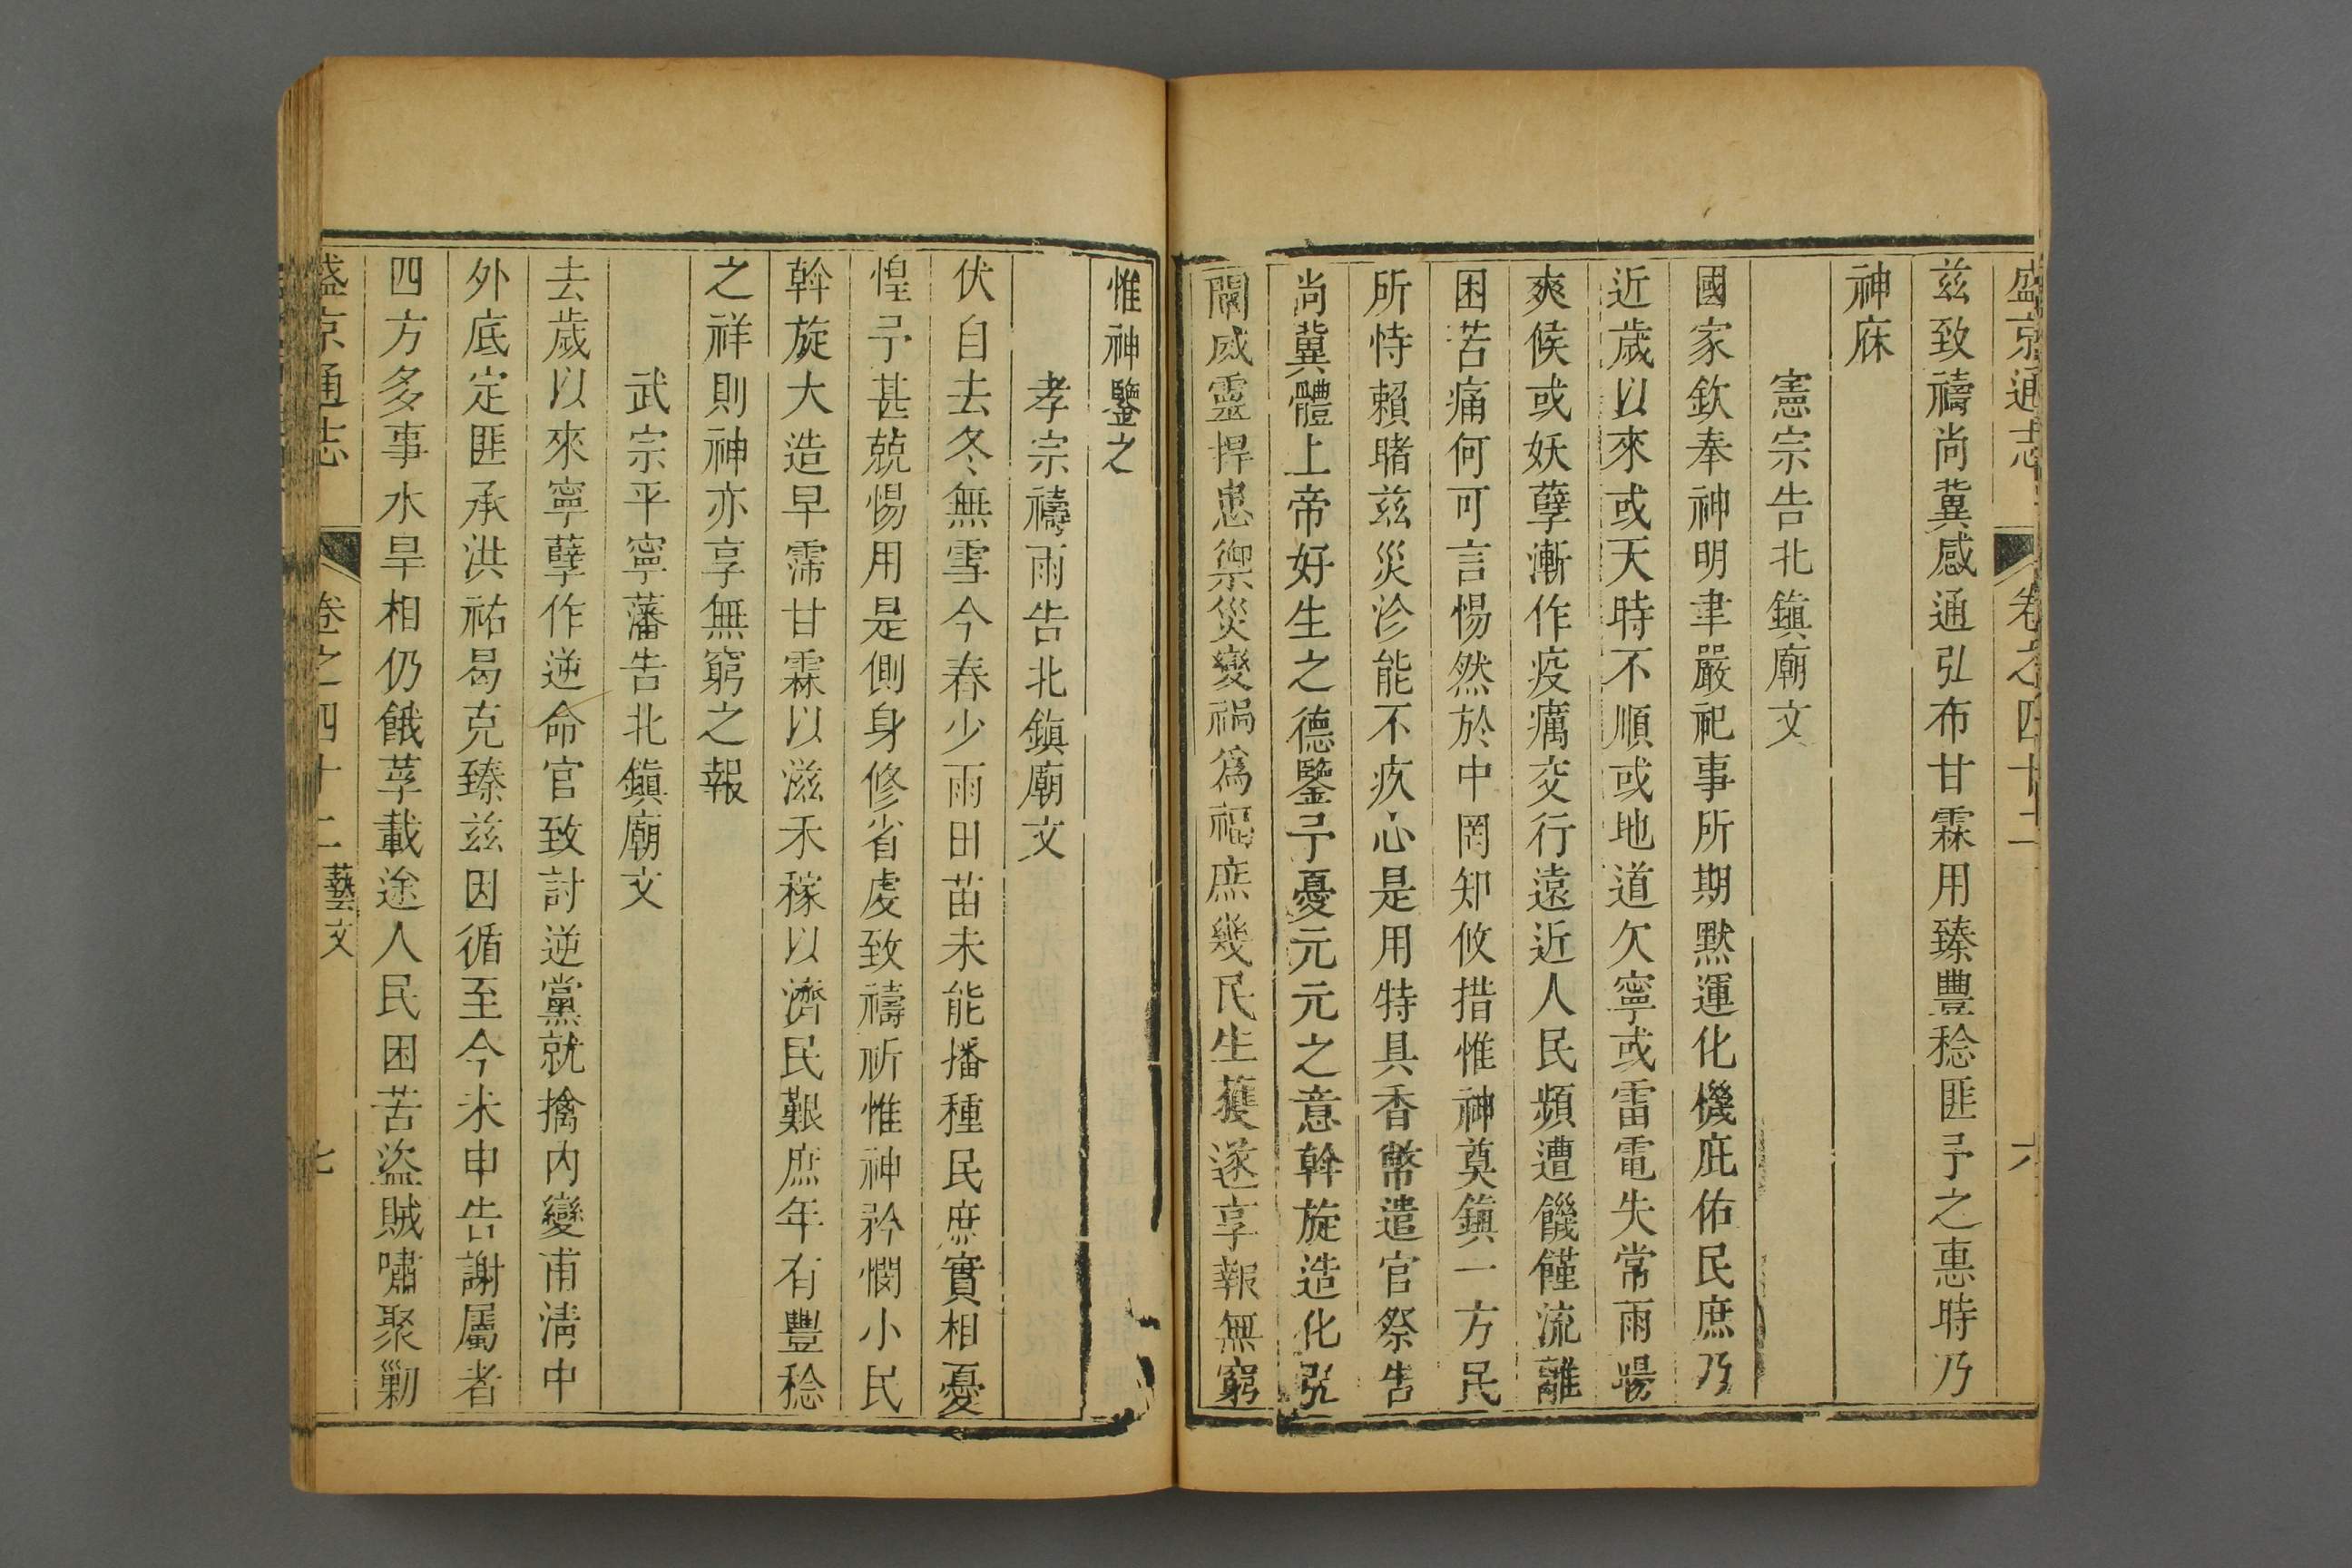 盛京通志 卷之四十二 六
兹致禱尚冀感通弘布甘霖用臻豐稔匪予之惠時乃
神庥
憲宗告北鎮廟文
國家欽奉神明聿嚴祀事所期默運化機庇佑民庶乃
近歲以來或天時不順或地道欠寧或雷電失常雨暘
爽候或妖孽漸作疫癘交行遠近人民頻遭饑饉流離
困苦痛何可言惕然於中罔知攸措惟神奠鎮一方民
所恃賴睹兹災沴能不疚心是用特具香幣遣官祭告
尚冀體上帝好生之德鑒予憂元元之意斡旋造化弘
闡威靈捍患禦災變禍爲福庶幾民生獲遂享報無窮
惟神鑒之
孝宗禱雨告北鎮廟文
伏自去冬無雪今春少雨田苗未能播種民庶實相憂
惶予甚兢惕用是側身修省虔致禱祈惟神矜憫小民
斡旋大造早霈甘霖以滋禾稼以濟民艱庶年有豐稔
之祥則神亦享無窮之報
武宗平寧藩告北鎮廟文
去歲以來寧孽作逆命官致討逆黨就擒內變甫淸中
外底定匪承洪祐曷克臻兹因循至今未申告謝屬者
四方多事水旱相仍餓莩載途人民困苦盜賊嘯聚剿
盛京通志 卷之四十二 藝文 七